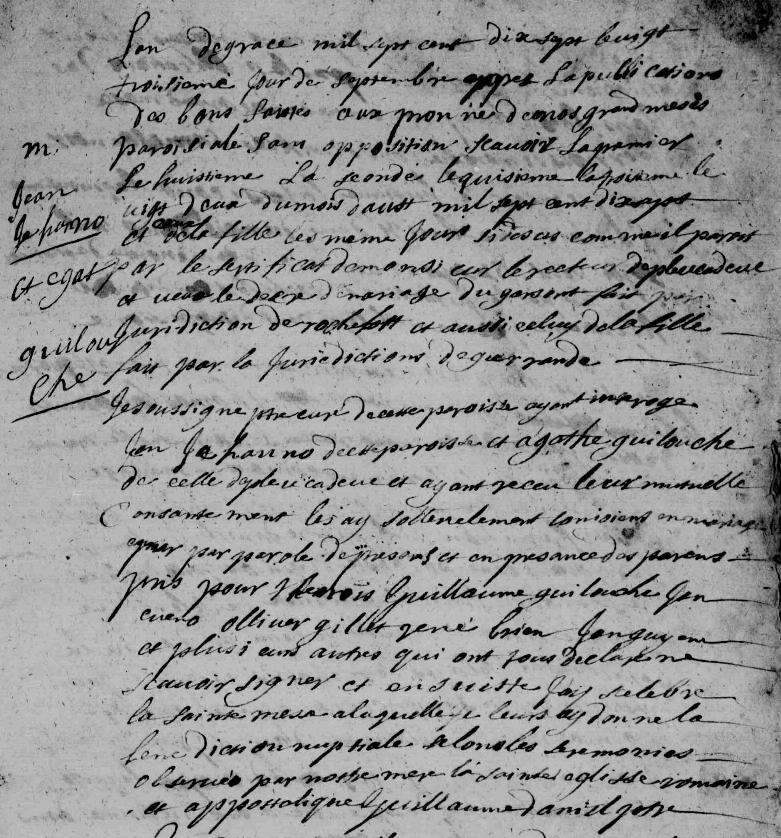 Lan degrace mil sept cent dix sept le vigt
troisieme Jour de septembre appres la publications
des bans saittes aux pronne denos grand meses
paroisiale sans opposition scavoir la premier
m:
Le huistieme La seconde le quisieme la troisieme le
Jean
vigt deux dumois daust mil sept cent dix sept
Jehanno
et de la fille les méme Jours sidesus comme il paroit
et agat
par le sertificat demonsieur le recteur de pleucadeuc
et veue le decre de mariage du garsont fait par
guilou
Juridiction de rochefort et aussi celuy de la fille
che
fait par la Juridictions de guerrande
Je soussigne ptre cure de cette paroisse ayant interoge
Jan Jehanno de cette paroisse et agathe guilouche
de celle de pleucadeuc et ayant receu leur mutuelle
Consantement les ay sollenelement conioient en mariage
par parole de presans et en presance des parens
pris pour temois Guillaume guilouche Jan
evero olliver gillet rené brien Jan guyene
et plusieurs autres qui ont tous declare ne
scavoir signer et ensuiste Jay selebre
la sainte messe a laquelle je leurs ay donne la
benediction nuptiale selon les seremonies
observée par nostre mere la sainte eglisse romaine
et appostolique Guillaume danilo ptre